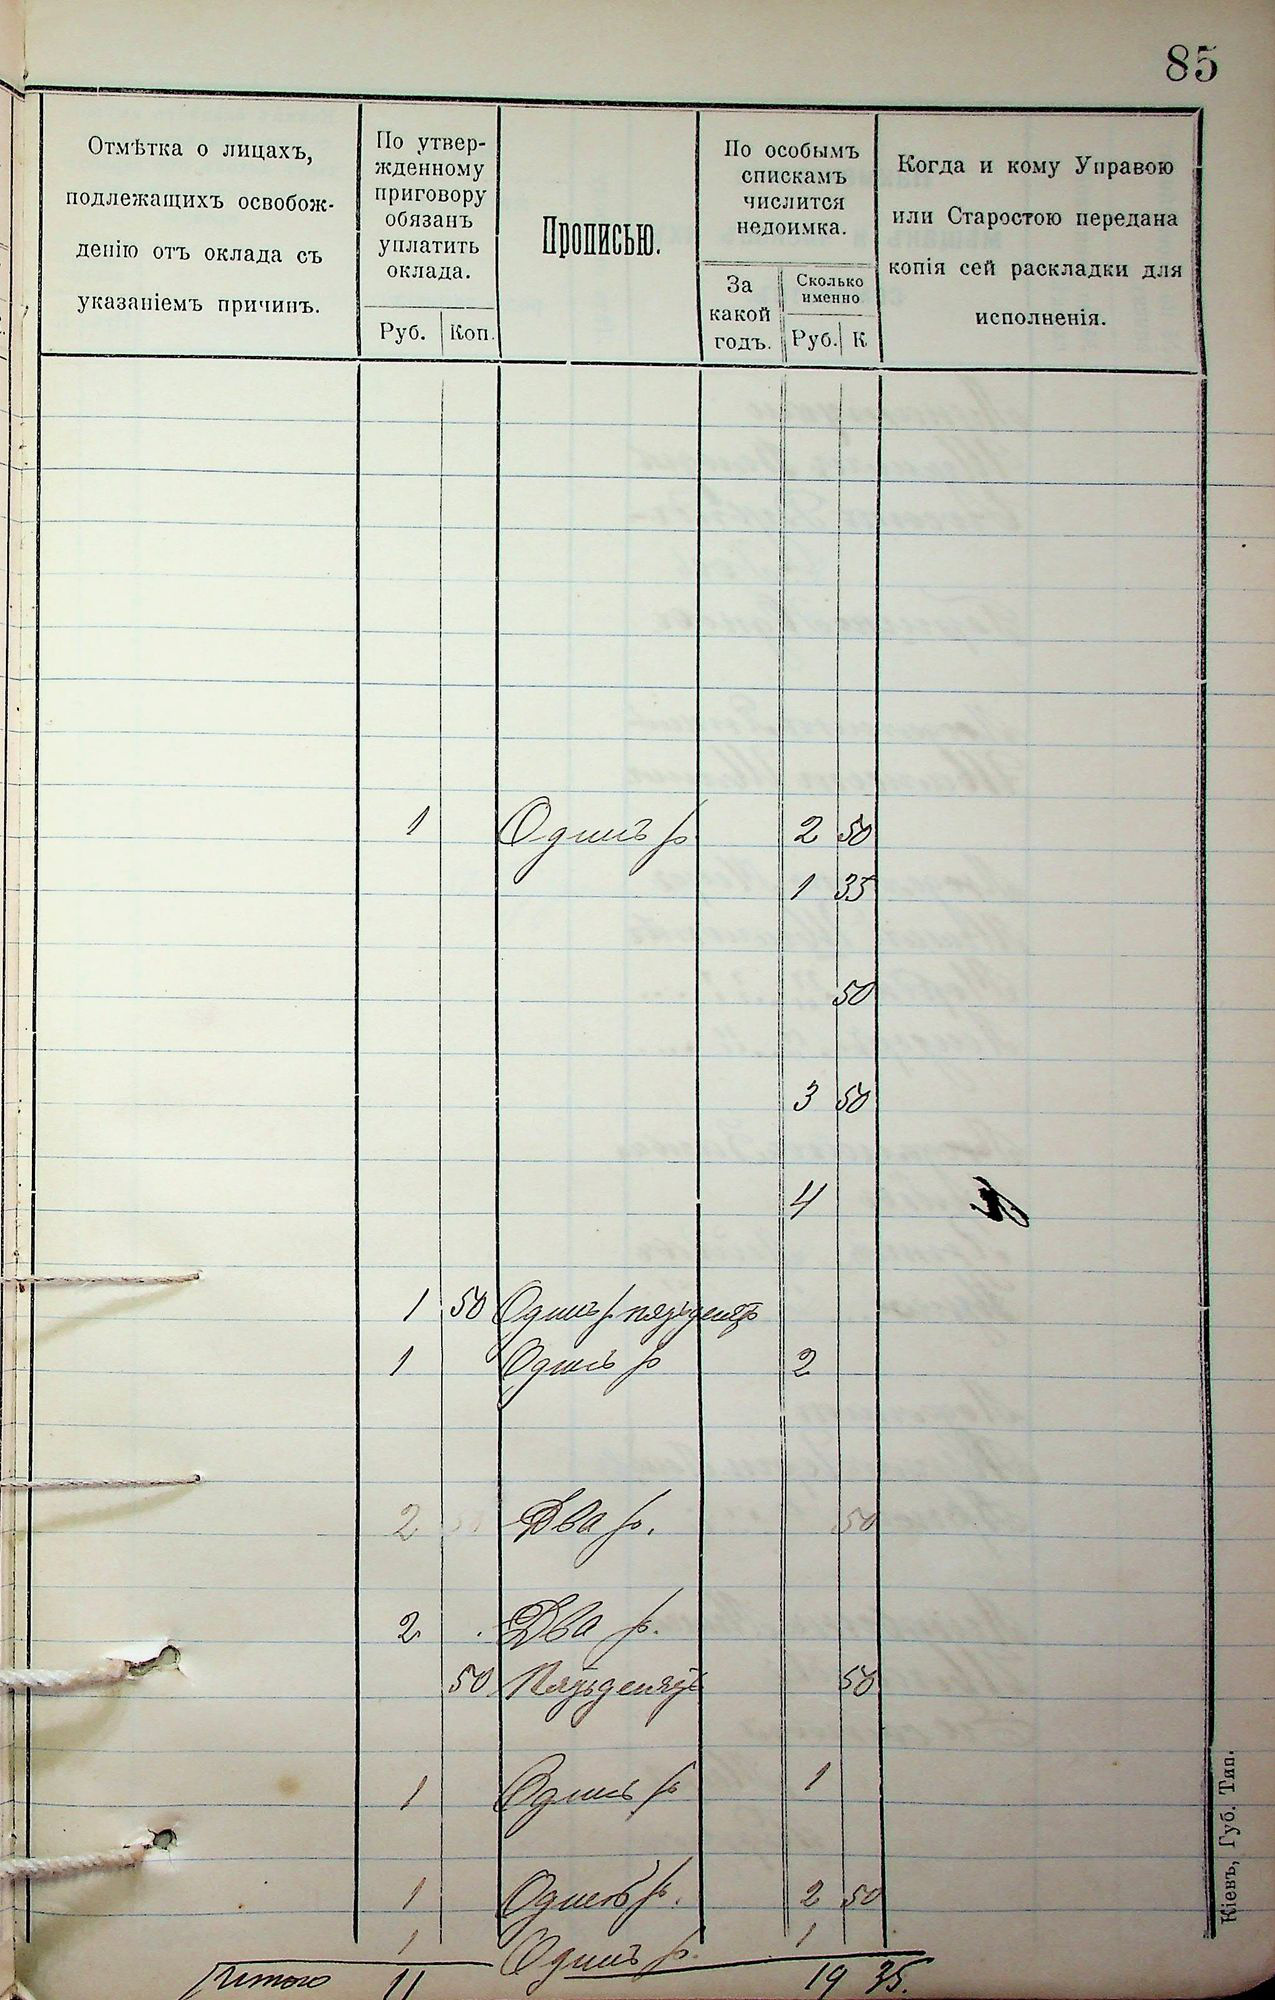 85
Отмѣтка о лицахъ,
подлежащихъ освобож-
денію отъ оклада съ
указаніемъ причинъ.
По утвер-
жденному
приговору
обязанъ
уплатить
оклада.
Руб. Коп.
Прописью.
По особымъ
спискамъ
числится
недоимка.
За
какой
годъ.
Сколько
именно
Руб. К
Когда и кому Управою
или Старостою передана
копія сей раскладки для
исполненія.
1 Одинъ р 2 50
1 35
50
3 50
4
1 50 Одинъ р пятьдесят
1 Одинъ р 2
2 Два р. 50
2 Два р.
50 Пятьдесятъ 50
1 Одинъ р 1
1 Одинъ р. 2 50
1 Одинъ р. 1
Итого 11 19 35.
Кіевъ, Губ. Тип.